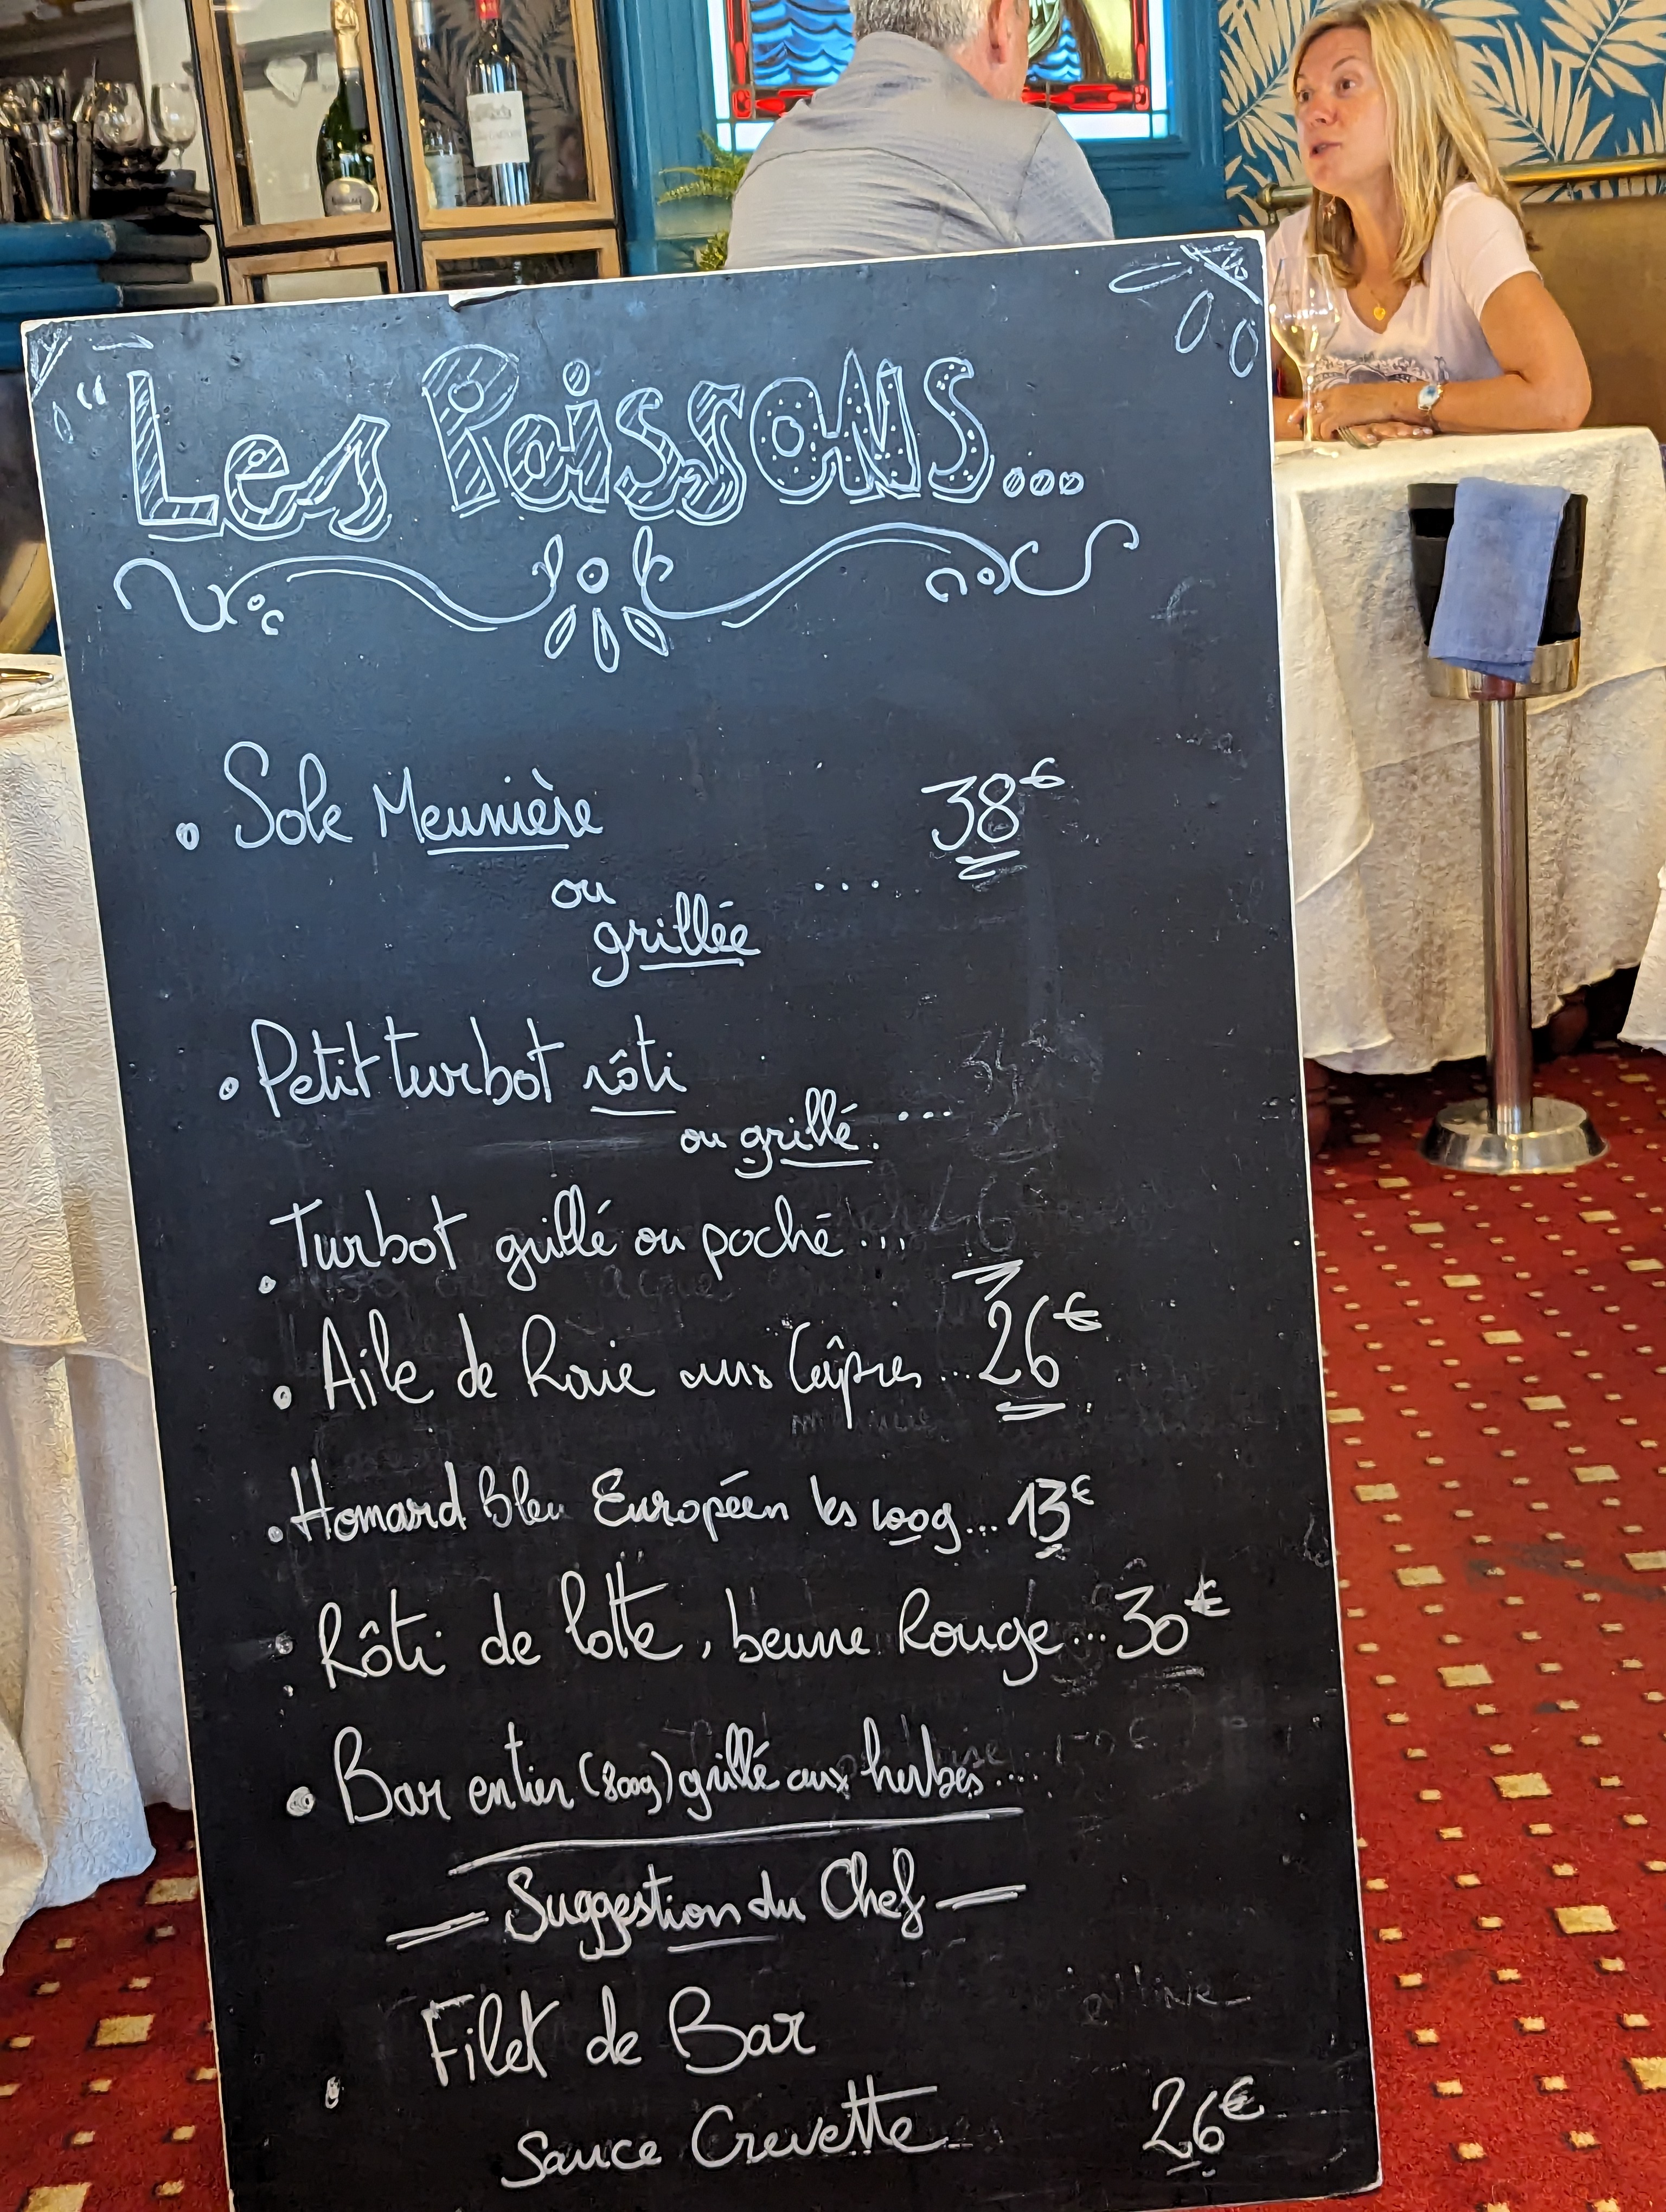 “Les Poissons...
• Sole Meunière 38€
ou ...
grillée
• Petit turbot rôti
ou grillé. ...
• Turbot grillé ou poché ...
• Aile de Raie aux Câpres ... 26€
• Homard Bleu Européen les 100g... 13€
• Rôti de lotte, beurre Rouge... 30€
• Bar entier (800g) grillé aux herbes....
Suggestion du Chef
• Filet de Bar
Sauce Crevette 26€